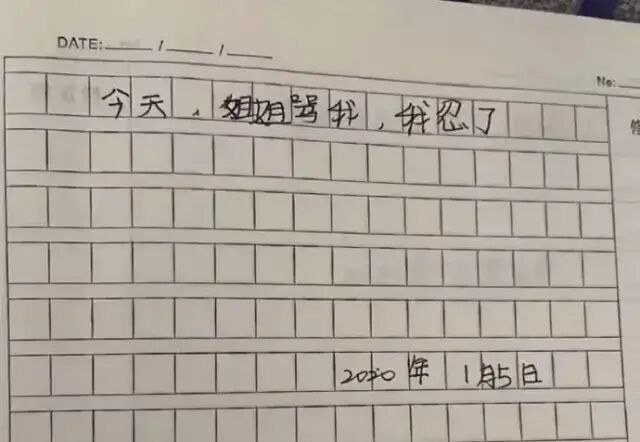 DATE: / /
No:
今天,姐姐骂我,我忍了
2020年 1月5日